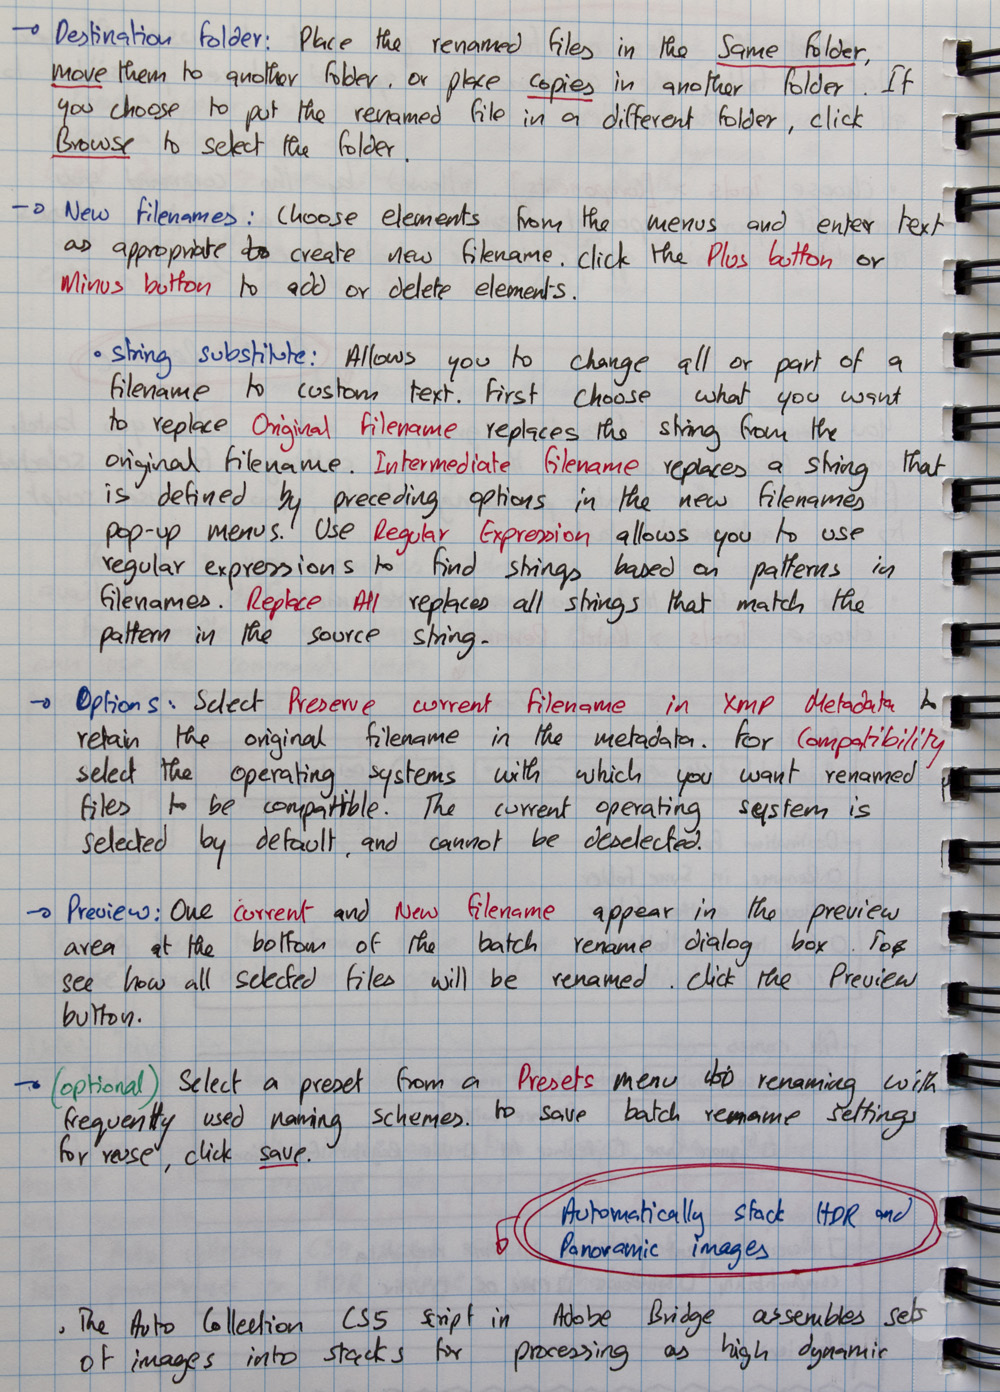 → Destination folder: Place the renamed files in the Same folder,
move them to another folder, or place copies in another folder. If
you choose to put the renamed file in a different folder, click
Browse to select the folder.
→ New filenames: Choose elements from the menus and enter text
as appropriate to create new filename. click the Plus button or
Minus button to add or delete elements.
• String substitute: Allows you to change all or part of a
filename to custom text. First choose what you want
to replace Original filename replaces the string from the
original filename. Intermediate filename replaces a string that
is defined by preceding options in the new filenames
pop-up menus. Use Regular Expression allows you to use
regular expressions to find strings based on patterns in
filenames. Replace All replaces all strings that match the
pattern in the source string.
→ Options: Select Preserve current filename in XMP Metadata to
retain the original filename in the metadata. For Compatibility
select the operating systems with which you want renamed
files to be compatible. The current operating system is
selected by default, and cannot be deselected.
→ Preview: One current and New filename appear in the preview
area at the bottom of the batch rename dialog box. To
see how all selected files will be renamed. click the Preview
button.
→ (optional) Select a preset from a Presets menu to renaming with
frequently used naming schemes. to save batch rename settings
for reuse, click save.
Automatically stack HDR and
Panoramic images
. The Auto Collection CS5 script in Adobe Bridge assembles sets
of images into stacks for processing as high dynamic